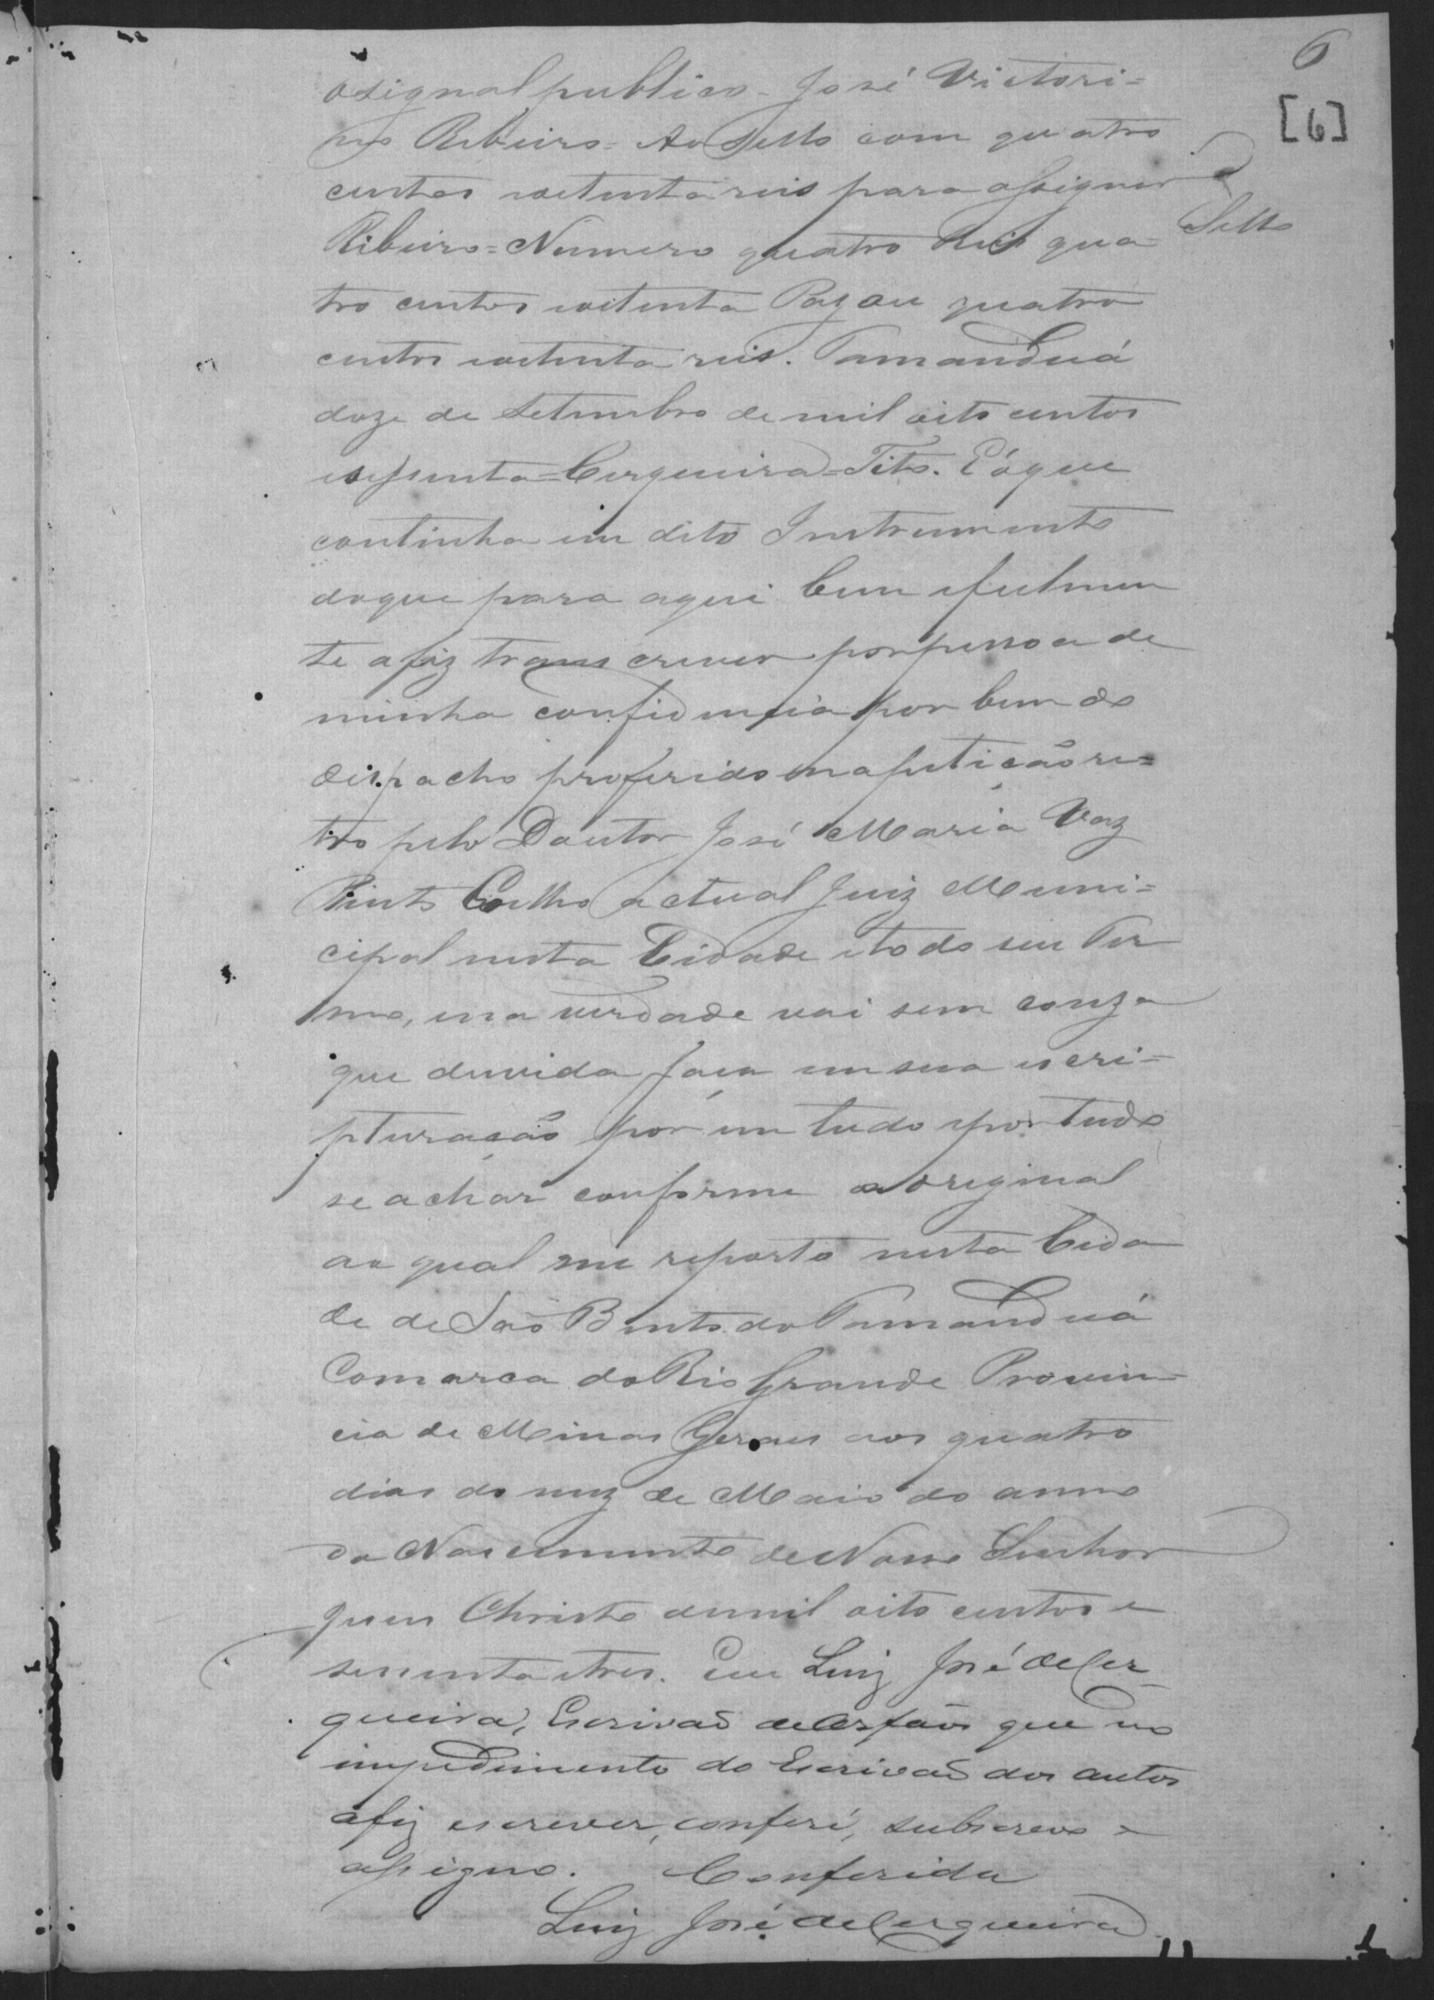 6
[6]
osignal publico - José Victori=
no Ribeiro = Ao Sello com quatro
centos eoitenta reis para assignar
Sello
Ribeiro = Numero quatro Reis qua=
tro centos eoitenta Pagou quatro
centos eoitenta reis. Tamanduá
doze de Setembro de mil oito centos
esessenta = Cerqueira = Tito. É o que
continha em dito Instrumento
doque para aqui bem efielmen
te afiz transcrever por pessoa de
minha confidencia por bem do
dispacho proferido na petição re=
tro pelo Doutor José Maria Vaz
Pinto Coelho actual Juiz Muni=
cipal nesta Cidade etodo seu Ter
mo, ena verdade vai sem couza
que duvida faça em sua escri=
pturação por em tudo epor tudo
se achar conforme ao original
ao qual me reporto nesta Cida
de de São Bento do Tamanduá
Comarca do Rio Grande Provin=
cia de Minas Geraes aos quatro
dias do mez de Maio do anno
do Nascimento de Nosso Senhor
Jesus Christo demil oito centos e
sessenta etres. Eu Luiz José de Cer
queira, Escrivão de Orfãos que no
impedimento do Escrivão dos autos
afiz escrever, conferi, subscrevo e
assigno. Conferida
Luiz José de Cerqueira